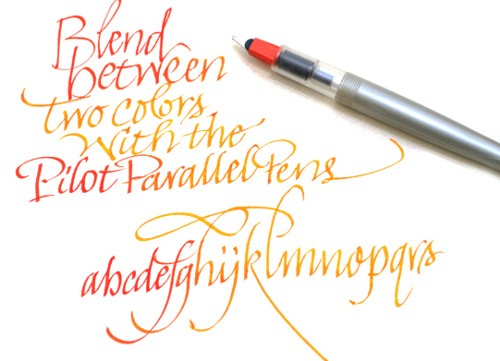 Blend
between
two colors
with the
Pilot Parallel Pens
abcdefghijklmnopqrs